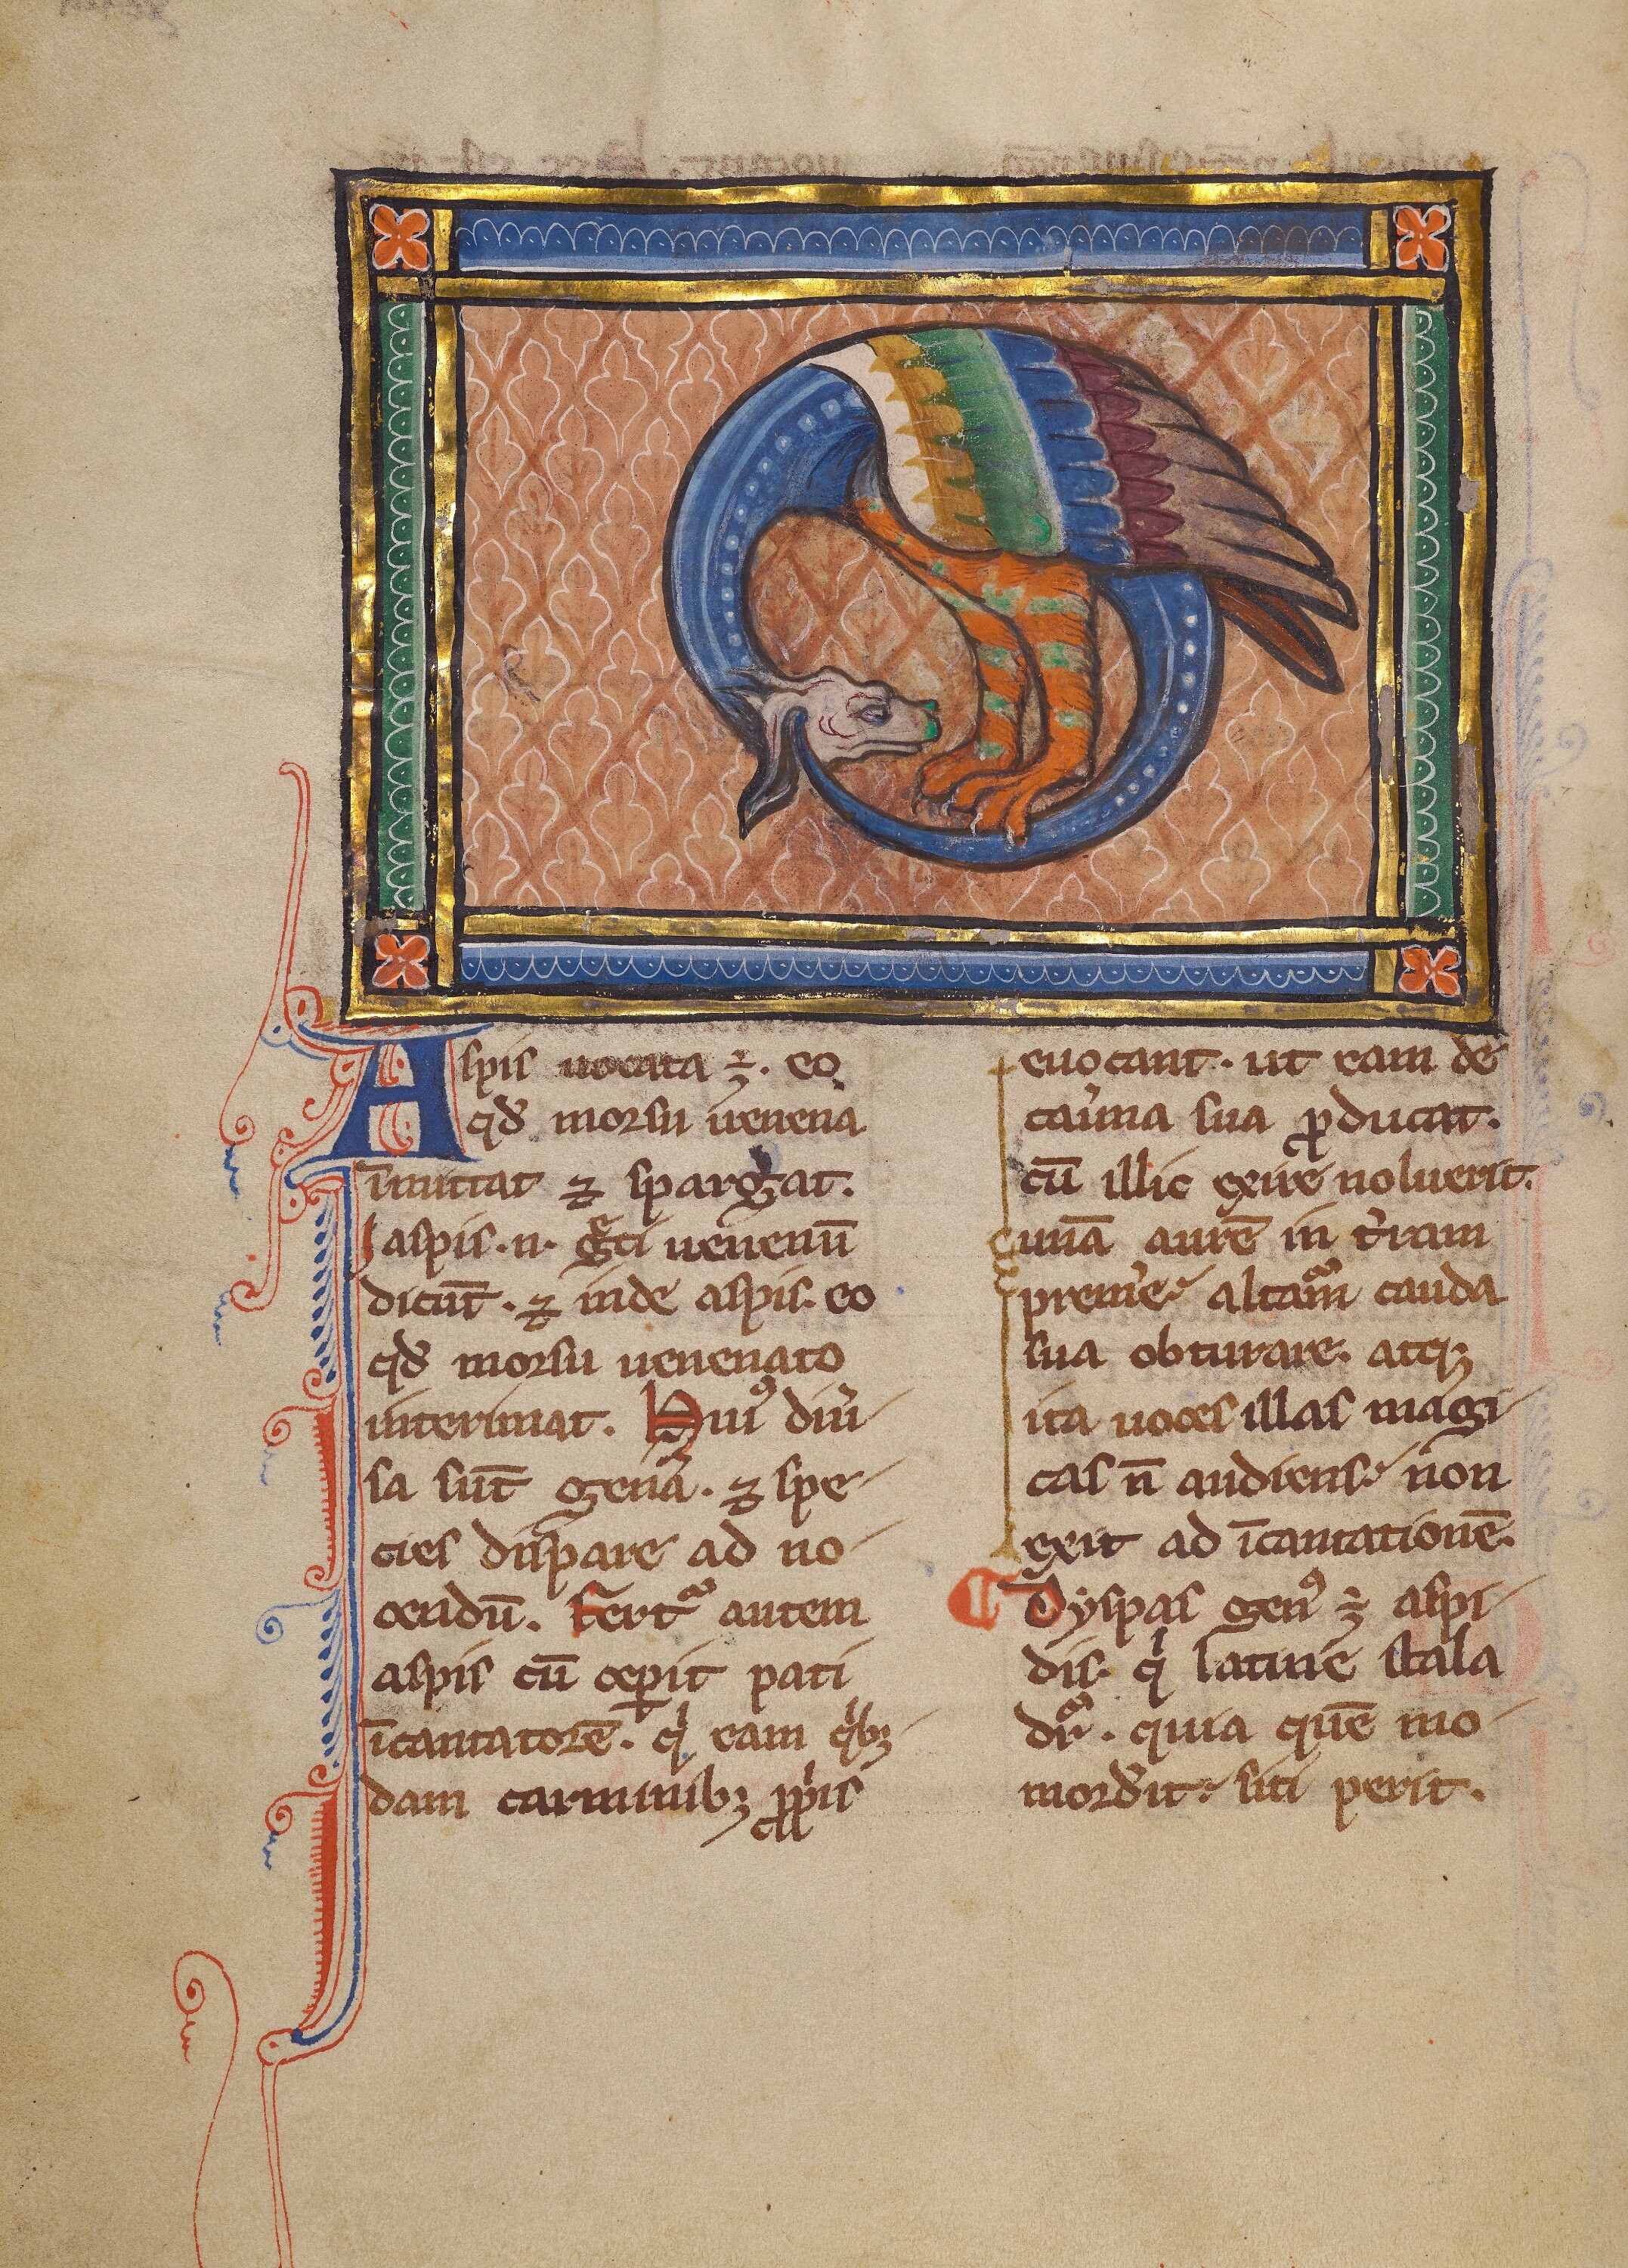 Aspis uocata ē. eo
qđ morsu uenena
īmittat ⁊ spargat.
Jaspis .n. gͨci uenenū
dicūt. ⁊ inde aspis. eo
qđ morsu uenenato
interimat. Huiꝰ diu̓
sa sūt gen̓a. ⁊ spe
cies dispare ad no
cendū. Fertᷣ autem
aspis cū ceꝑit pati
īcantatorē. qͥ eam qͥbꝫ
dam carminibꝫ ꝓpͥis
euocant. ut eam de
cau̓na sua ꝓducat.
cū illic exire noluerit.
unā aurē in t̓ram
prem̓e. altam̄ cauda
sua obturare. atqꝫ
ita uoces illas magi
cas n̄ audiens. non
exit ad īcantationē.
Dyspas genꝰ ē aspi
dis. qͥ latine stala
drᷣ. quia quē mo
mord̓it. siti perit.